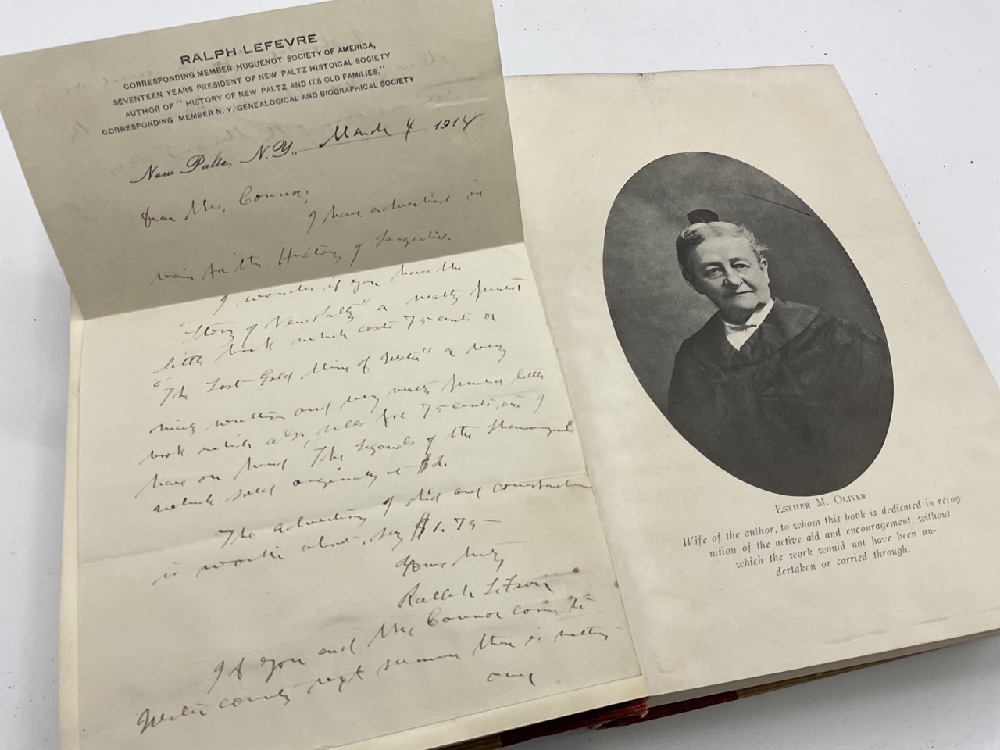 RALPH LEFEVRE
CORRESPONDING MEMBER HUGUENOT SOCIETY OF AMERICA,
SEVENTEEN YEARS PRESIDENT OF NEW PALTZ HISTOICAL SOCIETY
AUTHOR OF "HISTORY OF NEW PALTZ AND ITS OLD FAMILIES,"
CORRESPONDING MEMBER N. Y. GENEALOGICAL AND BIOGRAPHICAL SOCIETY
New Paltz, N. Y., March 4 1914
Dear Mr. Connor,
I have advertised in
vain for the History of Saugerties.
I wonder if you have the
"Story of New Paltz" a neatly printed
little book which costs 75 cents or
"The Lost Gold Mine of" a very
nicely written and very neatly printed little
book which also sells for 75 cents, or I
have on hand "The Legends of the Shawangunk
which sold originally at $2.
The advertising of and
is worth about, say $1.75 —
Yours truly
Ralph LeFevre
If you and Mrs Connor come to
Ulster county next summer there is
ESTHER M. OLIVER
Wife of the author, to whom this book is dedicated in recog-
nition of the active aid and encouragement, without
which the work would not have been un-
dertaken or carried through.